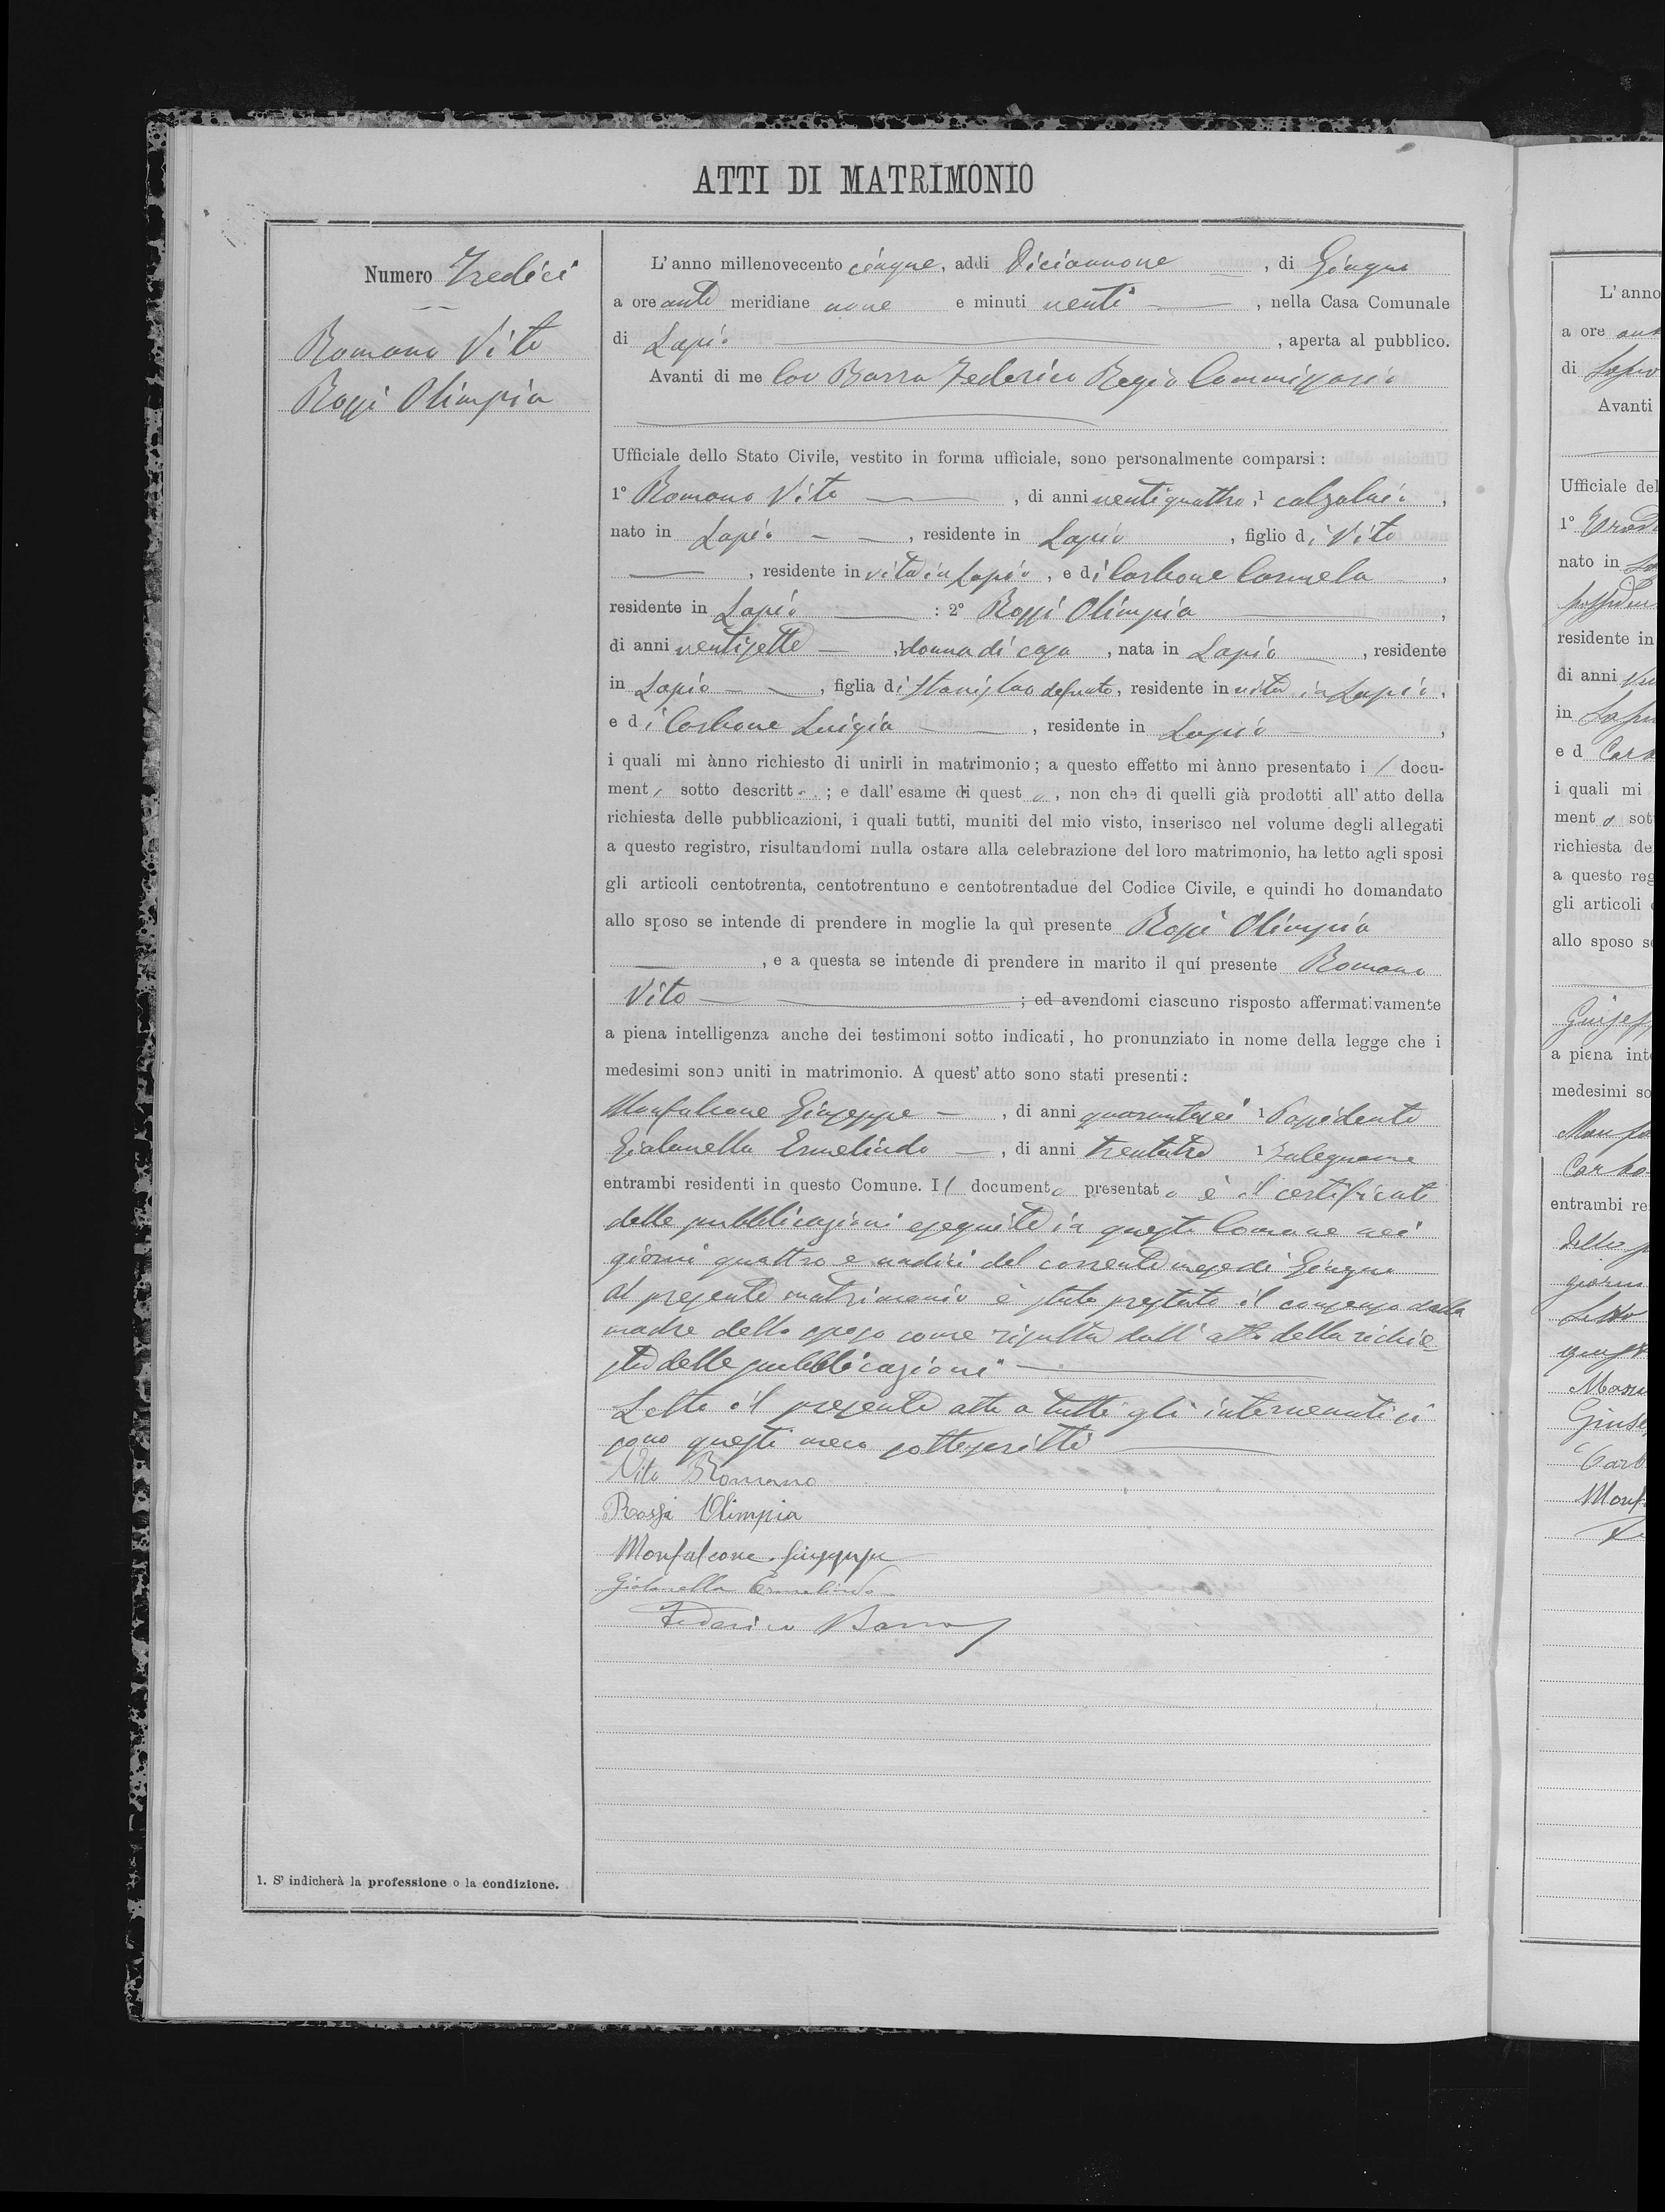 ATTI DI MATRIMONIO
Numero Tredici
Romano Vito
Rossi Olimpia
L' anno millenovecento cinque, addi Diciannove, di Giugno
a ore ante meridiane nove e minuti venti, nella Casa Comunale
di Lapio, aperta al pubblico.
Avanti di me Cav Barra Federico Regio Commissario
Ufficiale dello Stato Civile, vestito in forma ufficiale, sono personalmente comparsi:
1° Romano Vito, di anni ventiquattro, 1 calzolaio,
nato in Lapio, residente in Lapio, figlio di Vito
, residente in vita in Lapio, e di Carbone Carmela,
residente in Lapio: 2° Rossi Olimpia,
di anni ventisette, 1 donna di casa, nata in Lapio, residente
in Lapio, figlia di Stanislao defunto, residente in vita in Lapio,
e di Carbone Luigia, residente in Lapio,
i quali mi ànno richiesto di unirli in matrimonio; a questo effetto mi ànno presentato il docu-
mento sotto descritto; e dall' esame di questo, non che di quelli già prodotti all' atto della
richiesta delle pubblicazioni, i quali tutti, muniti del mio visto, inserisco nel volume degli allegati
a questo registro, risultandomi nulla ostare alla celebrazione del loro matrimonio, ha letto agli sposi
gli articoli centotrenta, centotrentuno e centotrentadue del Codice Civile, e quindi ho domandato
allo sposo se intende di prendere in moglie la quì presente Rossi Olimpia
, e a questa se intende di prendere in marito il quí presente Romano
Vito; ed avendomi ciascuno risposto affermativamente
a piena intelligenza anche dei testimoni sotto indicati, ho pronunziato in nome della legge che i
medesimi sono uniti in matrimonio. A quest' atto sono stati presenti:
Monfalcone Giuseppe, di anni quarantasei 1 Possidente
Gialanella Ermelindo, di anni trentatre 1 Falegname
entrambi residenti in questo Comune. Il documento presentato è il certificato
delle pubblicazioni eseguite in questo Comune nei
giorni quattro e undici del corrente mese di Giugno
Al presente matrimonio è stato prestato il consenso dalla
madre dello sposo come risulta dall' atto della richie=
sta delle pubblicazioni
Letto il presente atto a tutti gli intervenuti si
sono questi meco sottoscritti
Vito Romano
Rossi Olimpia
Monfalcone Giuseppe
Gialanella Ermelindo
Federico Barra
1. S' indicherà la professione o la condizione.
L' anno
a ore ant
di Lapio
Avanti
Ufficiale del
1°
nato in
residente in
di anni
in
e d Car
i quali mi
mento sot
richiesta de
a questo reg
gli articoli
allo sposo s
Giusepp
a piena int
medesimi so
Monfa
Carbo
entrambi re
giorni
Giuse
Carb
Monf